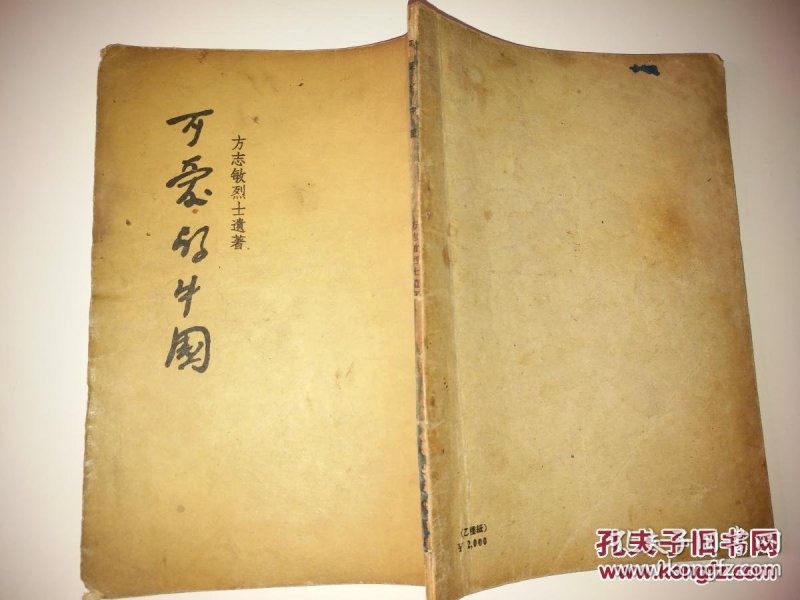 可爱的中國
方志敏烈士遺著
(乙種紙)
¥ 2,000
孔夫子旧书网
www.kongfz.com